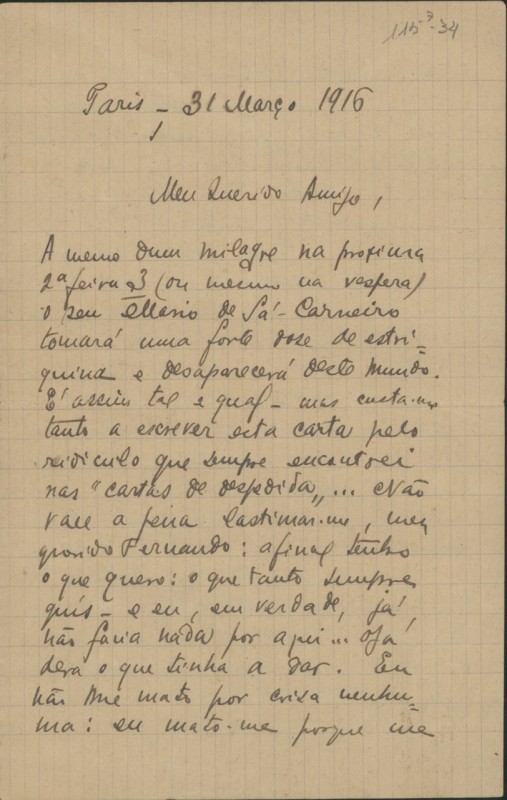 115³-34
Paris - 31 Março 1916
Meu Querido Amigo,
A menos dum milagre na proxima
2ª feira 3 (ou mesmo na vespera)
o seu Mario de Sá-Carneiro
tomará uma forte dose de estri-
quina e desaparecerá deste mundo.
É assim tal e qual - mas custa-me
tanto a escrever esta carta pelo
ridiculo que sempre encontrei
nas "cartas de despedida"... Não
vale a pena lastimar-me, meu
querido Fernando: afinal tenho
o que quero: o que tanto sempre
quis - e eu, em verdade, já
não fazia nada por aqui... Já
dera o que tinha a dar. Eu
não me mato por coisa nenhu-
ma: eu mato-me porque me